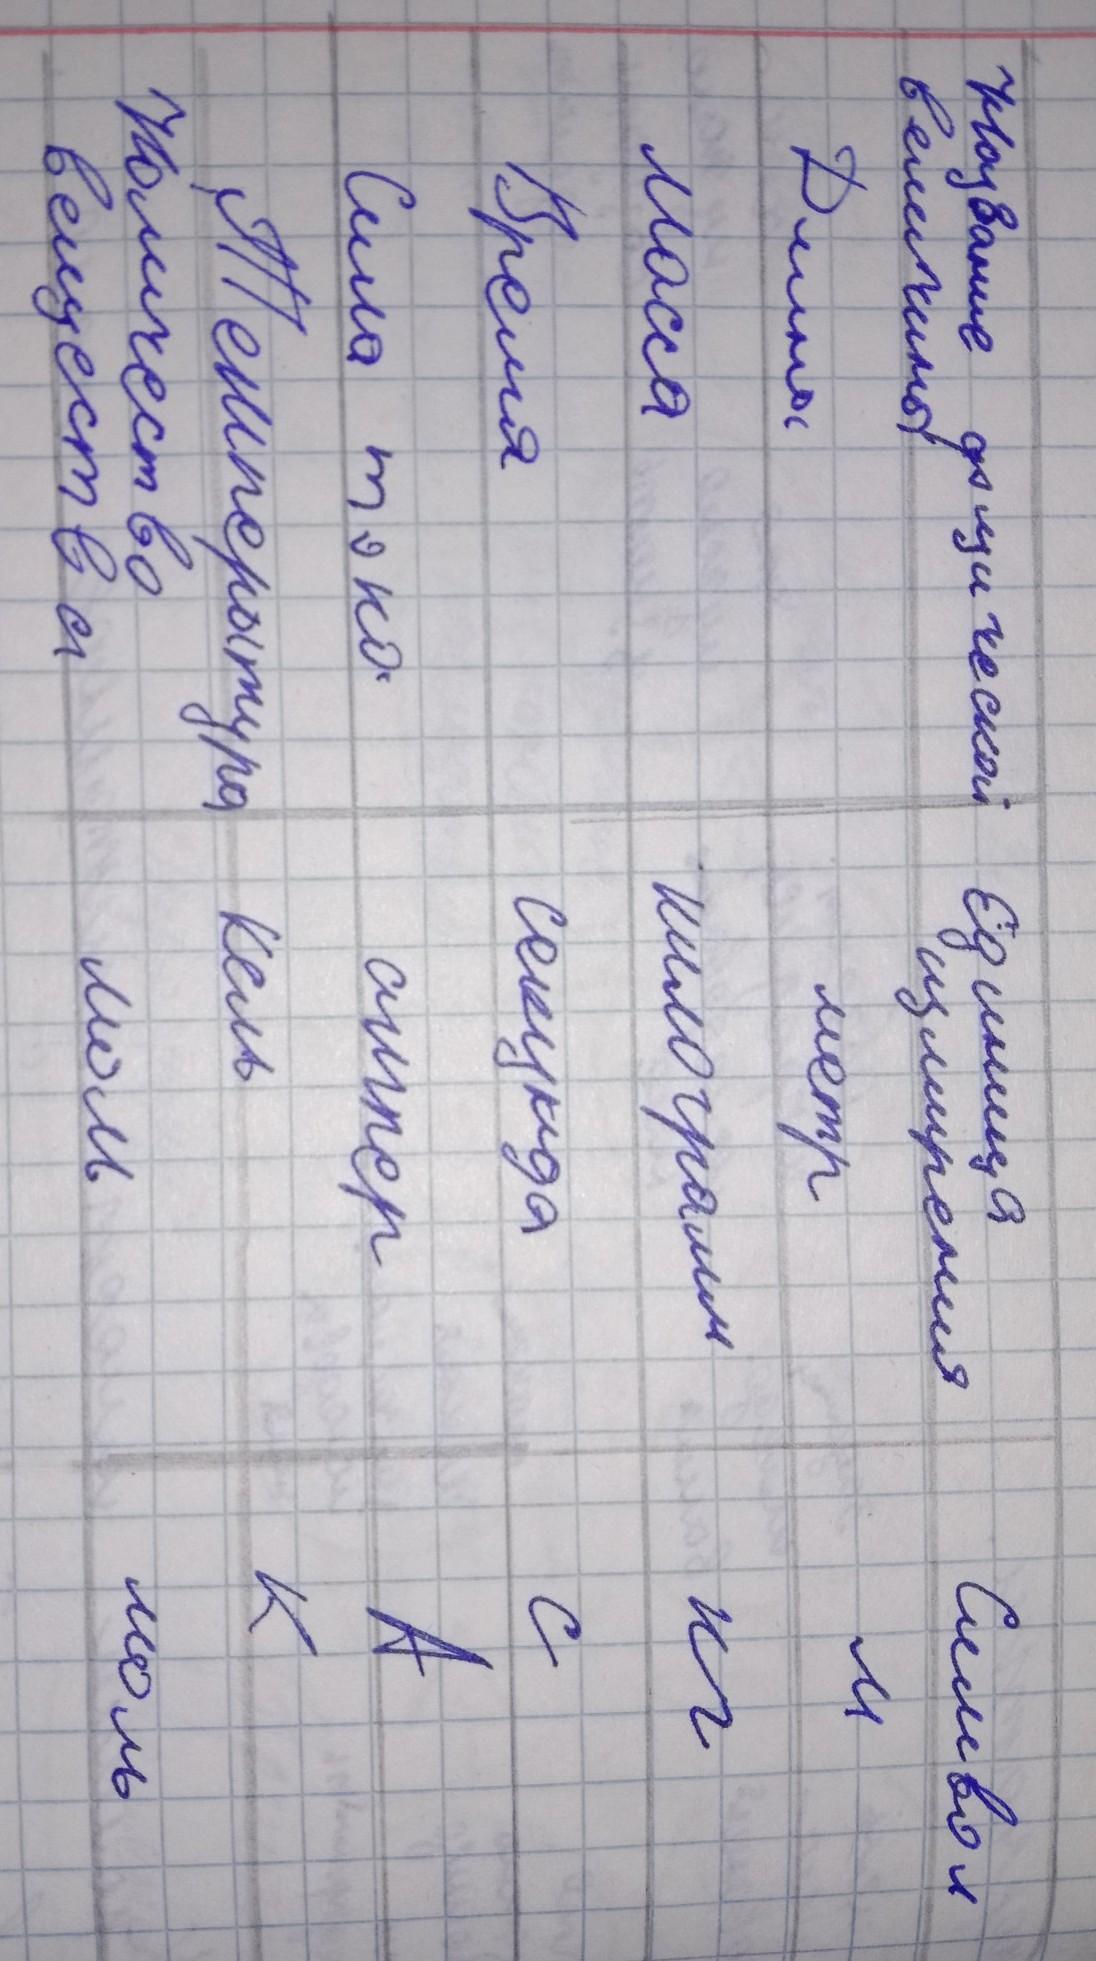 Название физической Единица Символ
величины измирения
Длины метр м
Масса килограмм кг
Время Секунда С
Сила тока ампер А
Температура Кель К
Количество
вещества моль моль